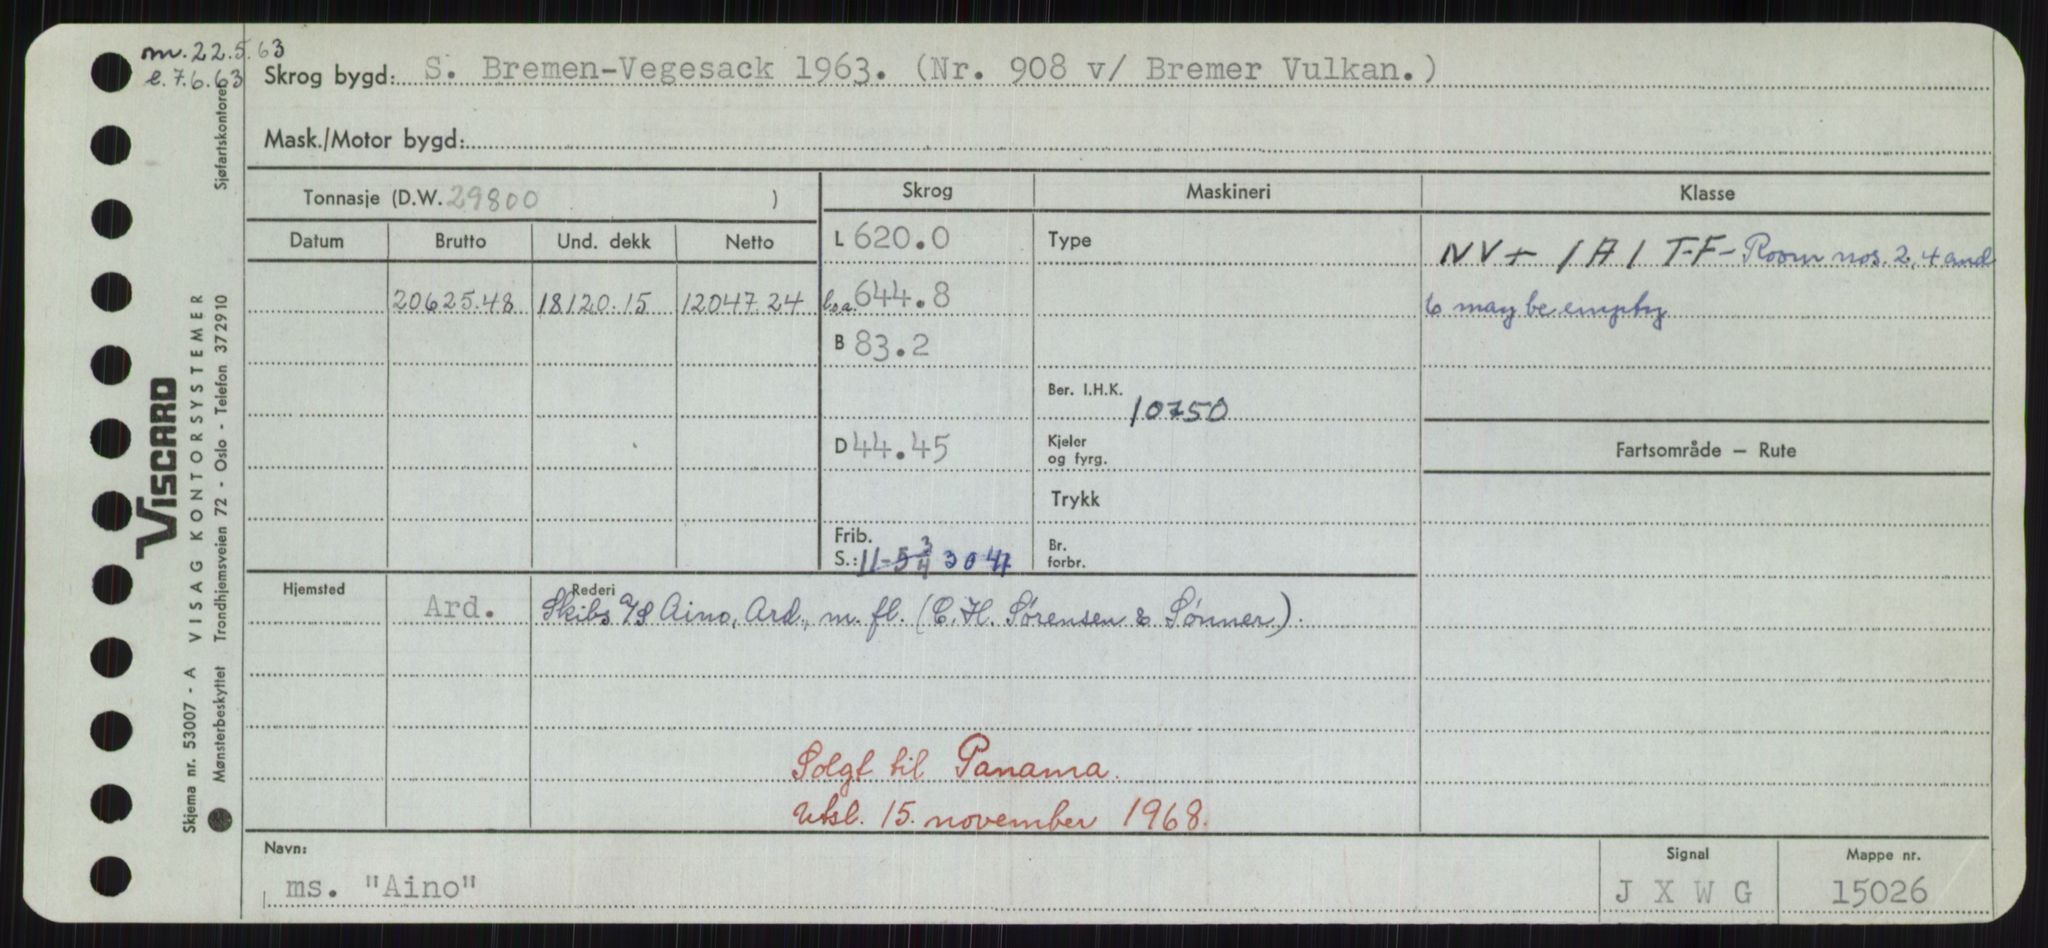 m. 22.5.63
e. 7.6.63
Skrog bygd: S. Bremen-Vegesack 1963. (Nr. 908 v/ Bremer Vulkan.)
Mask./Motor bygd:
Tonnasje (D.W. 29800 )
Skrog
Maskineri
Klasse
Datum
Brutto
Und. dekk
Netto
20625.48
18120.15
12047.24
L 620.0
l.o.a. 644.8
B 83.2
D 44.45
Frib.
S.: 11-5 3/4
Type
Ber. I.H.K. 10750
Kjeler
og fyrg.
Trykk
Br.
forbr.
NV + 1A1 T-F - Room nos. 2, 4 and
6 may be empty
Fartsområde – Rute
Hjemsted
Ard.
Rederi
Skibs A/S Aino, Ard., m. fl. (C. H. Sørensen & Sønner).
Solgt til Panama.
Utsl. 15. november 1968.
Navn:
ms. "Aino"
Signal
J X W G
Mappe nr.
15026
VISCARD
Skjema nr. 53007 - A VISAG KONTORSYSTEMER
Mønsterbeskyttet Trondhjemsveien 72 - Oslo - Telefon 372910 Sjøfartskontoret